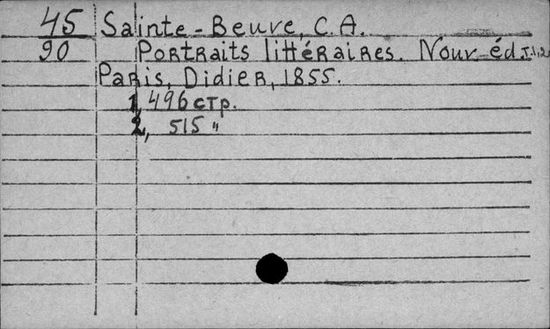 45 Sainte-Beuve, C. A.
90 Portraits littéraires. Nouv. éd. T. 1, 2
Paris, Didier, 1855.
1, 496 стр.
2, 515 "